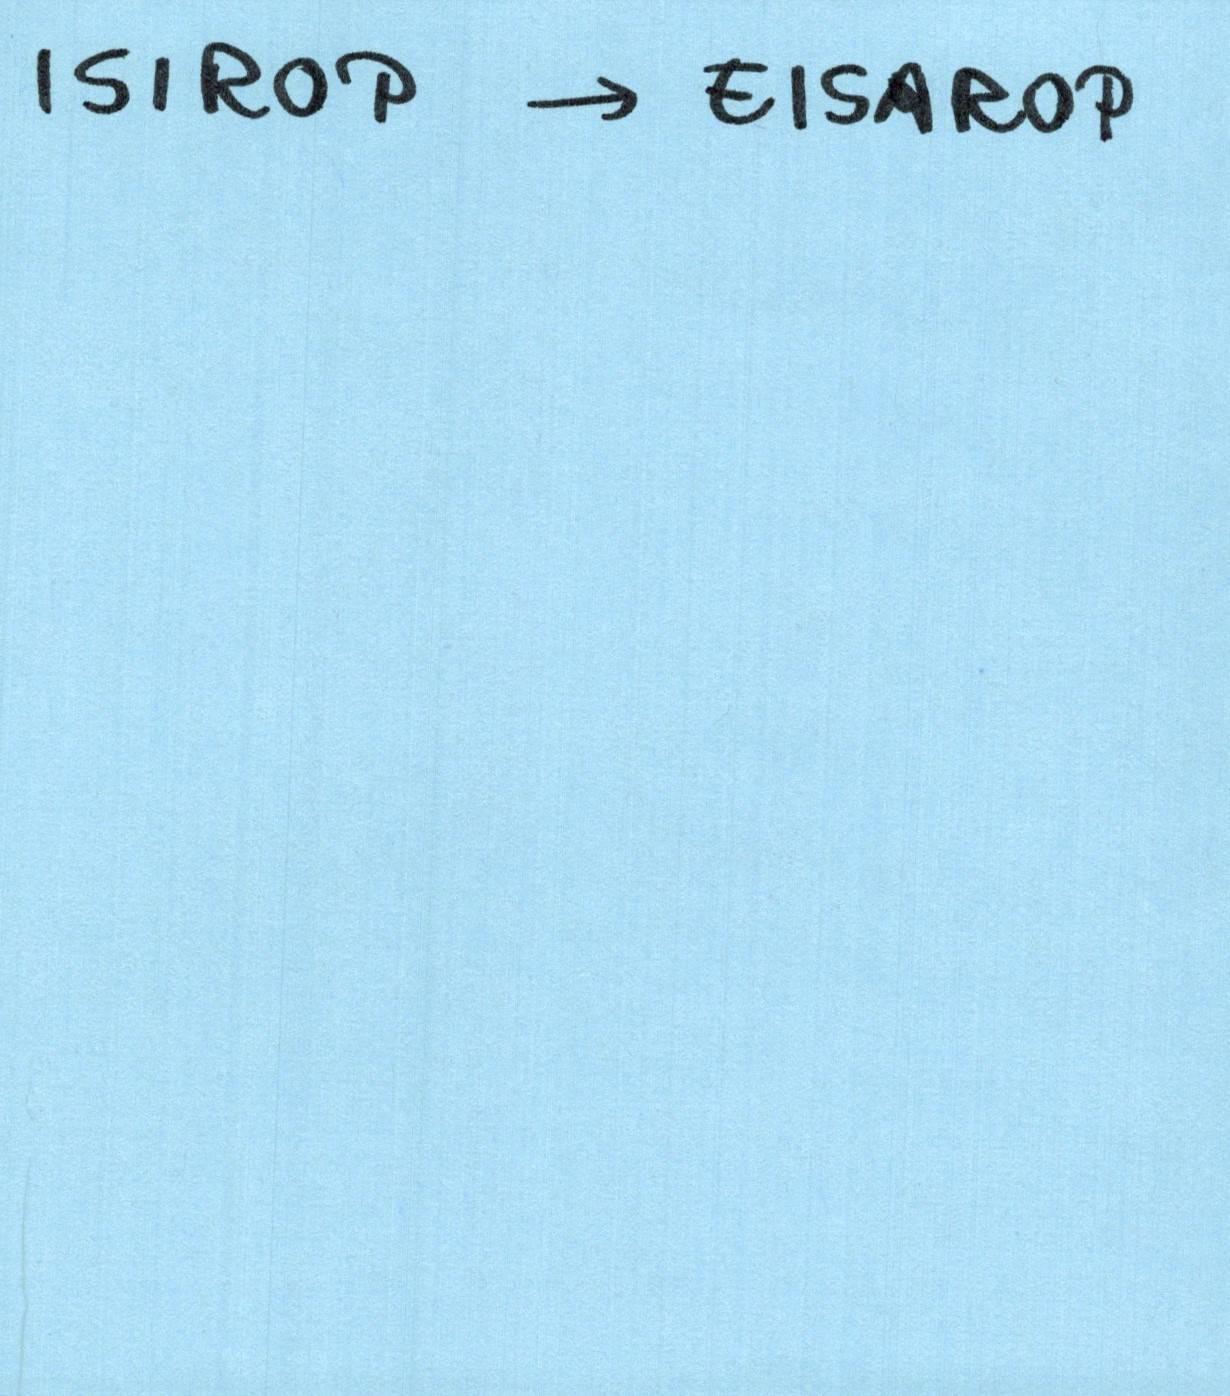 ISIROP → EISAROP